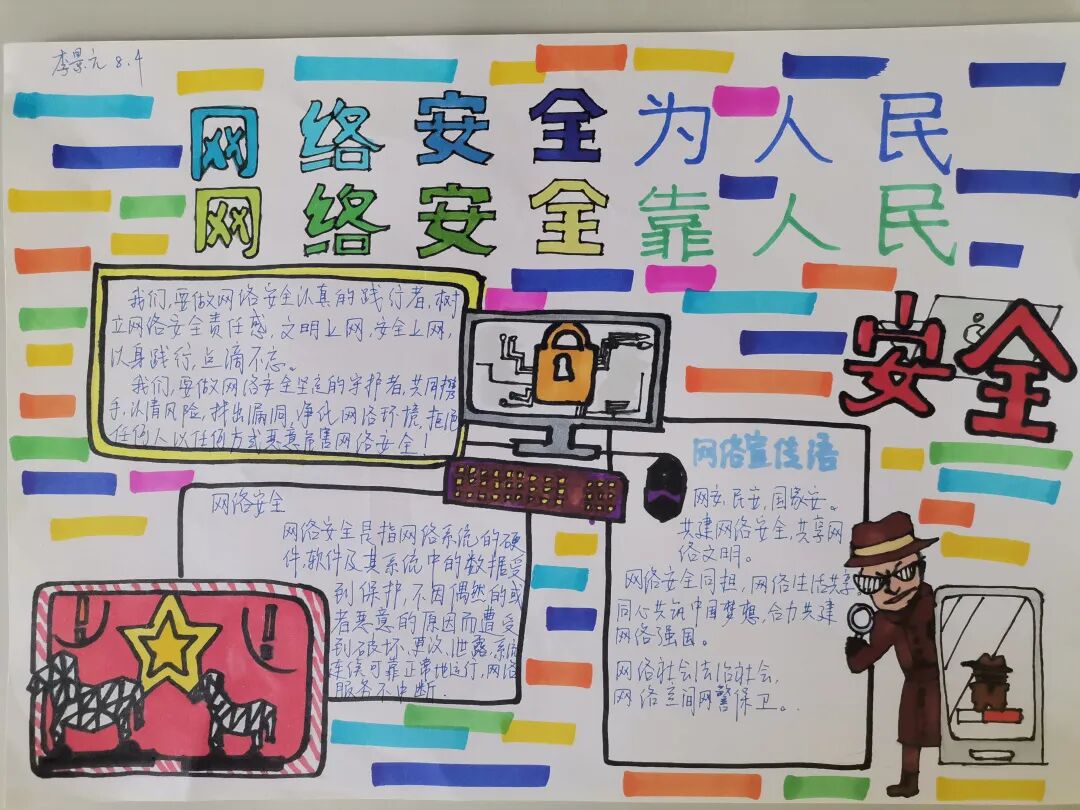 李景元 8.4
网络安全为人民
网络安全靠人民
我们,要做网络安全认真的践行者,树
立网络安全责任感,文明上网,安全上网,
以身践行,点滴不忘。
我们,要做网络安全坚定的守护者,共同携
手,认清风险,找出漏洞,净化网络环境,拒绝
任何人以任何方式恶意危害网络安全!
安全
网络安全
网络安全是指网络系统的硬
件,软件及其系统中的数据受
到保护,不因偶然的或
者恶意的原因而遭受
到破坏、更改、泄露,系统
连续可靠正常地运行,网络
服务不中断.
网络宣传语
网安,民安,国家安。
共建网络安全,共享网
络文明。
网络安全同担,网络生活共享
同心共筑中国梦想,合力共建
网络强国。
网络社会法治社会,
网络空间网警保卫。